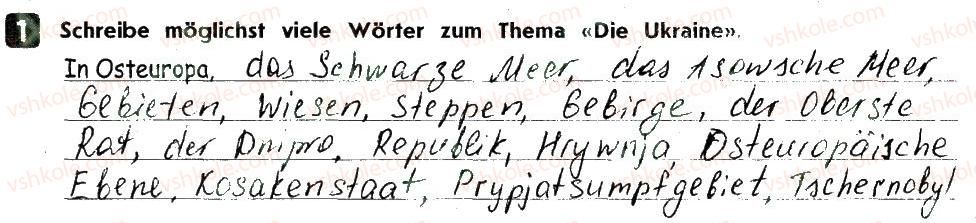 1 Schreibe möglichst viele Wörter zum Thema «Die Ukraine».
In Osteuropa, das Schwarze Meer, das Asowsche Meer,
Gebieten, Wiesen, Steppen, Gebirge, der Oberste
Rat, der Dnipro, Republik, Hrywnja, Osteuropäische
Ebene, Kosakenstaat, Prypjatsumpfgebiet, Tschernobyl